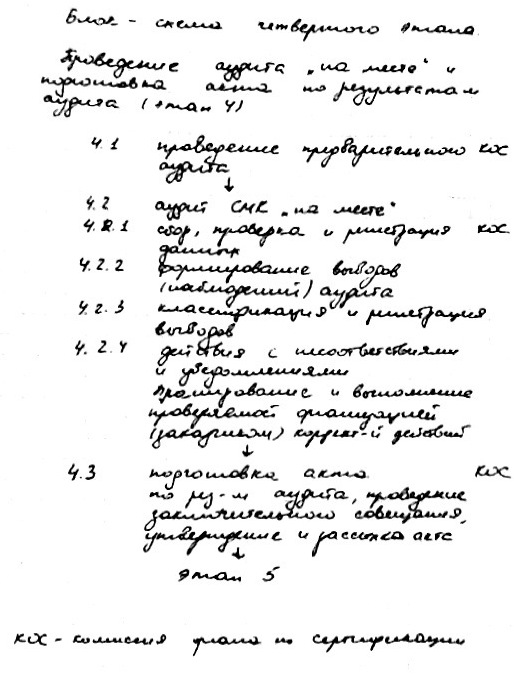 Блок - схема четвертого этапа
Проведение аудита „на месте" и
подготовка акта по результатам
аудита (этап 4)
4.1 проведение предварительного КОС
аудита
↓
4.2 аудит СМК „на месте"
4.2.1 сбор, проверка и регистрация КОС
данных
4.2.2 формирование выводов
(наблюдений) аудита
4.2.3 классификация и регистрация
выводов
4.2.4 действия с несоответствиями
и уведомлениями
Планирование и выполнение
проверяемой организацией
(заказчиком) коррект-й действий
↓
4.3 подготовка акта КОС
по рез-м аудита, проведение
заключительного совещания,
утверждение и рассылка акта
↓
Этап 5
КОС - комиссия органа по сертификации